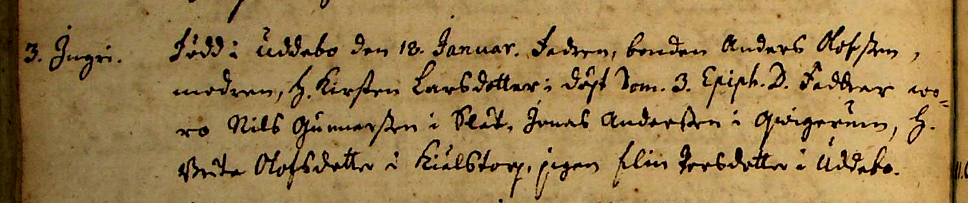 3. Ingri. Född i Uddebo den 18. Januar. Fadren, bonden Anders Olofssen,
modren, H. Kirsten Larsdotter; döpt Dom. 3. Epiph. D. Faddrar wo-
ro Nils Gunnarssen i Slät, Jonas Anderssen i Qwigerum, H.
Brita Olofsdotter i Kiälstorp, pigan Elin Joensdotter i Uddebo.